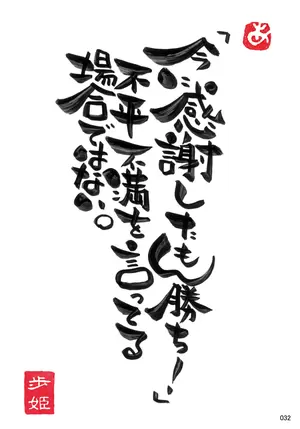 「今に感謝したもん勝ち！」
不平不満を言ってる
場合ではない。
歩姫
032